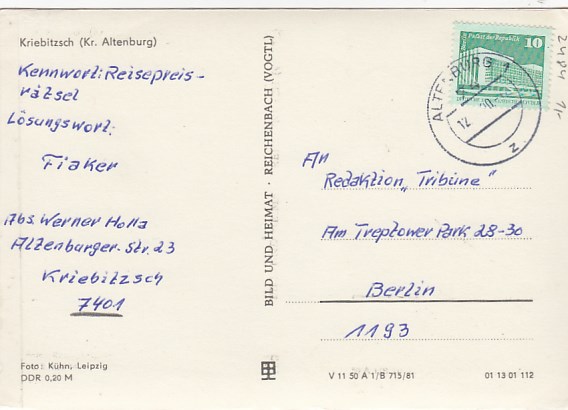 Kriebitzsch (Kr. Altenburg)
Kennwort: Reisepreis-
rätsel
Lösungswort:
Fiaker
Abs. Werner Holla
Altenburger-Str. 23
Kriebitzsch
7401
Foto: Kühn, Leipzig
DDR 0,20 M
BILD UND HEIMAT · REICHENBACH (VOGTL)
10
Palast der Republik
ALTENBURG 1
12
z
An
Redaktion „Tribüne"
Am Treptower Park 28-30
Berlin
1193
V 11 50 A 1/B 715/81
01 13 01 112